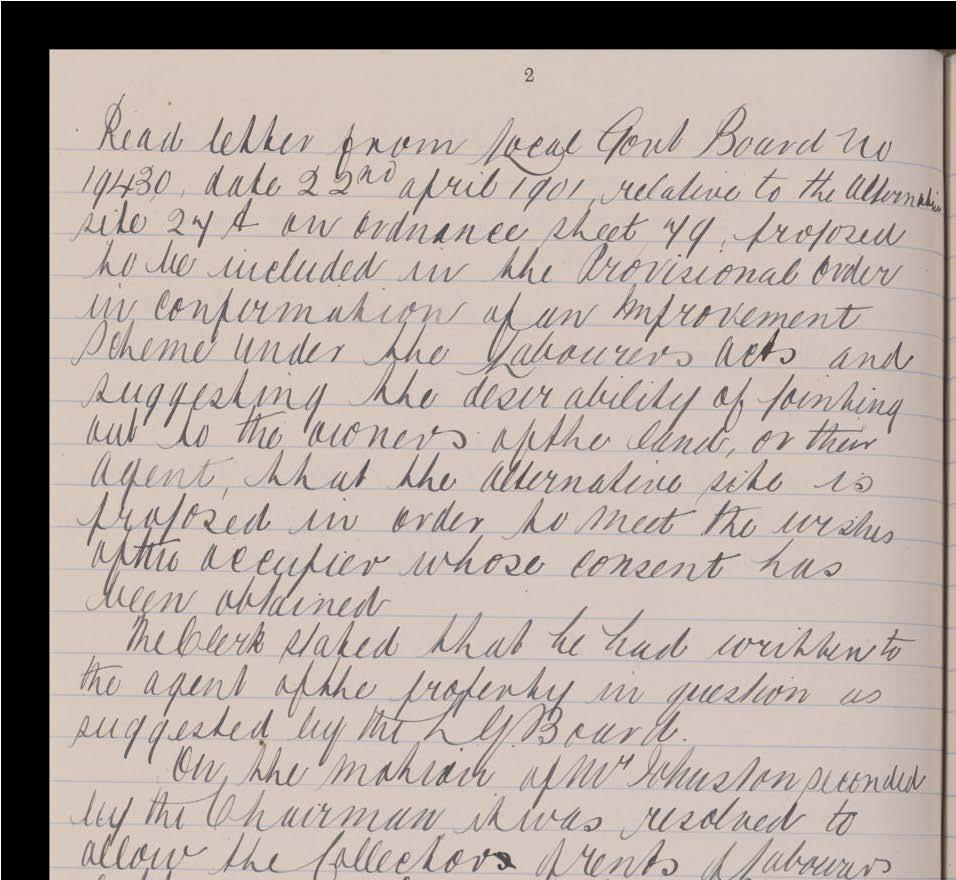 2
Read letter from Local Govt Board No
19430, date 22nd april 1901, relative to the alternative
site 27 A on ordnance sheet 79, proposed
to be included in the Provisional Order
in confirmation of an Improvement
Scheme under the Labourers acts and
suggesting the desirability of pointing
out to the owners of the land, or their
agent, that the alternative site is
proposed in order to meet the wishes
of the occupier whose consent has
been obtained
The Clerk stated that he had written to
the agent of the property in question as
suggested by the L.G. Board.
On the motion of Mr Johnston seconded
by the Chairman it was resolved to
allow the Collectors of rents of Labourers